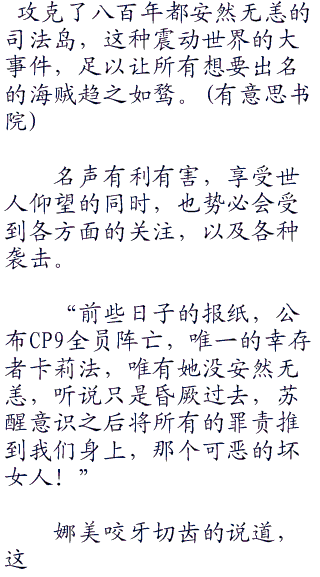 攻克了八百年都安然无恙的
司法岛，这种震动世界的大
事件，足以让所有想要出名
的海贼趋之如鹜。(有意思书
院)
名声有利有害，享受世
人仰望的同时，也势必会受
到各方面的关注，以及各种
袭击。
“前些日子的报纸，公
布CP9全员阵亡，唯一的幸存
者卡莉法，唯有她没安然无
恙，听说只是昏厥过去，苏
醒意识之后将所有的罪责推
到我们身上，那个可恶的坏
女人！”
娜美咬牙切齿的说道，
这